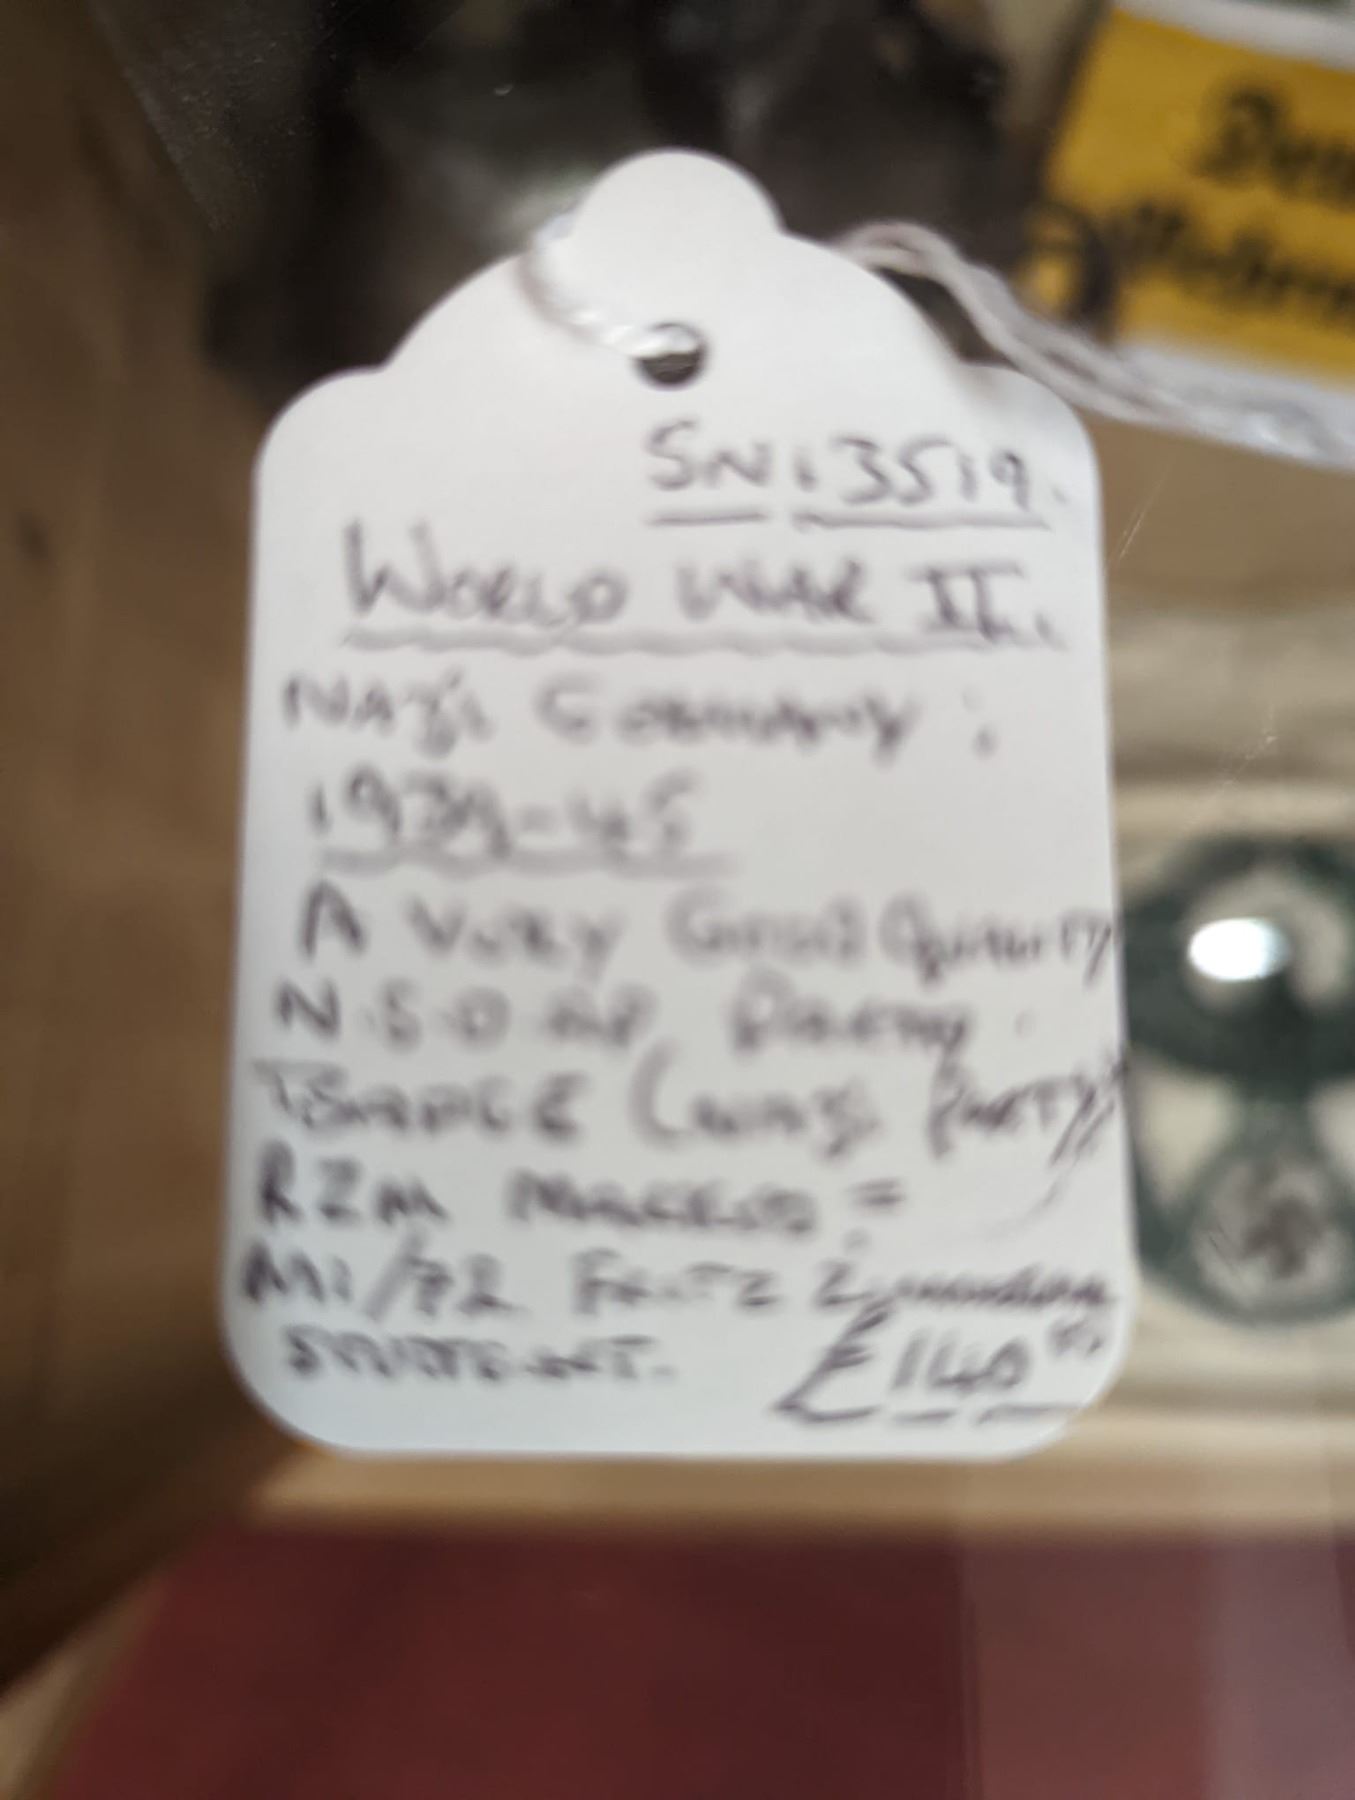 SN:3519.
WORLD WAR II.
NAZI GERMANY:
1939-45
A VERY GOOD QUALITY
N.S.D.AP. PARTY
BADGE (NAZI PARTY)
RZM MARKED:=
M1/72 FRITZ ZIMMERMANN
STUTTGART.
£140